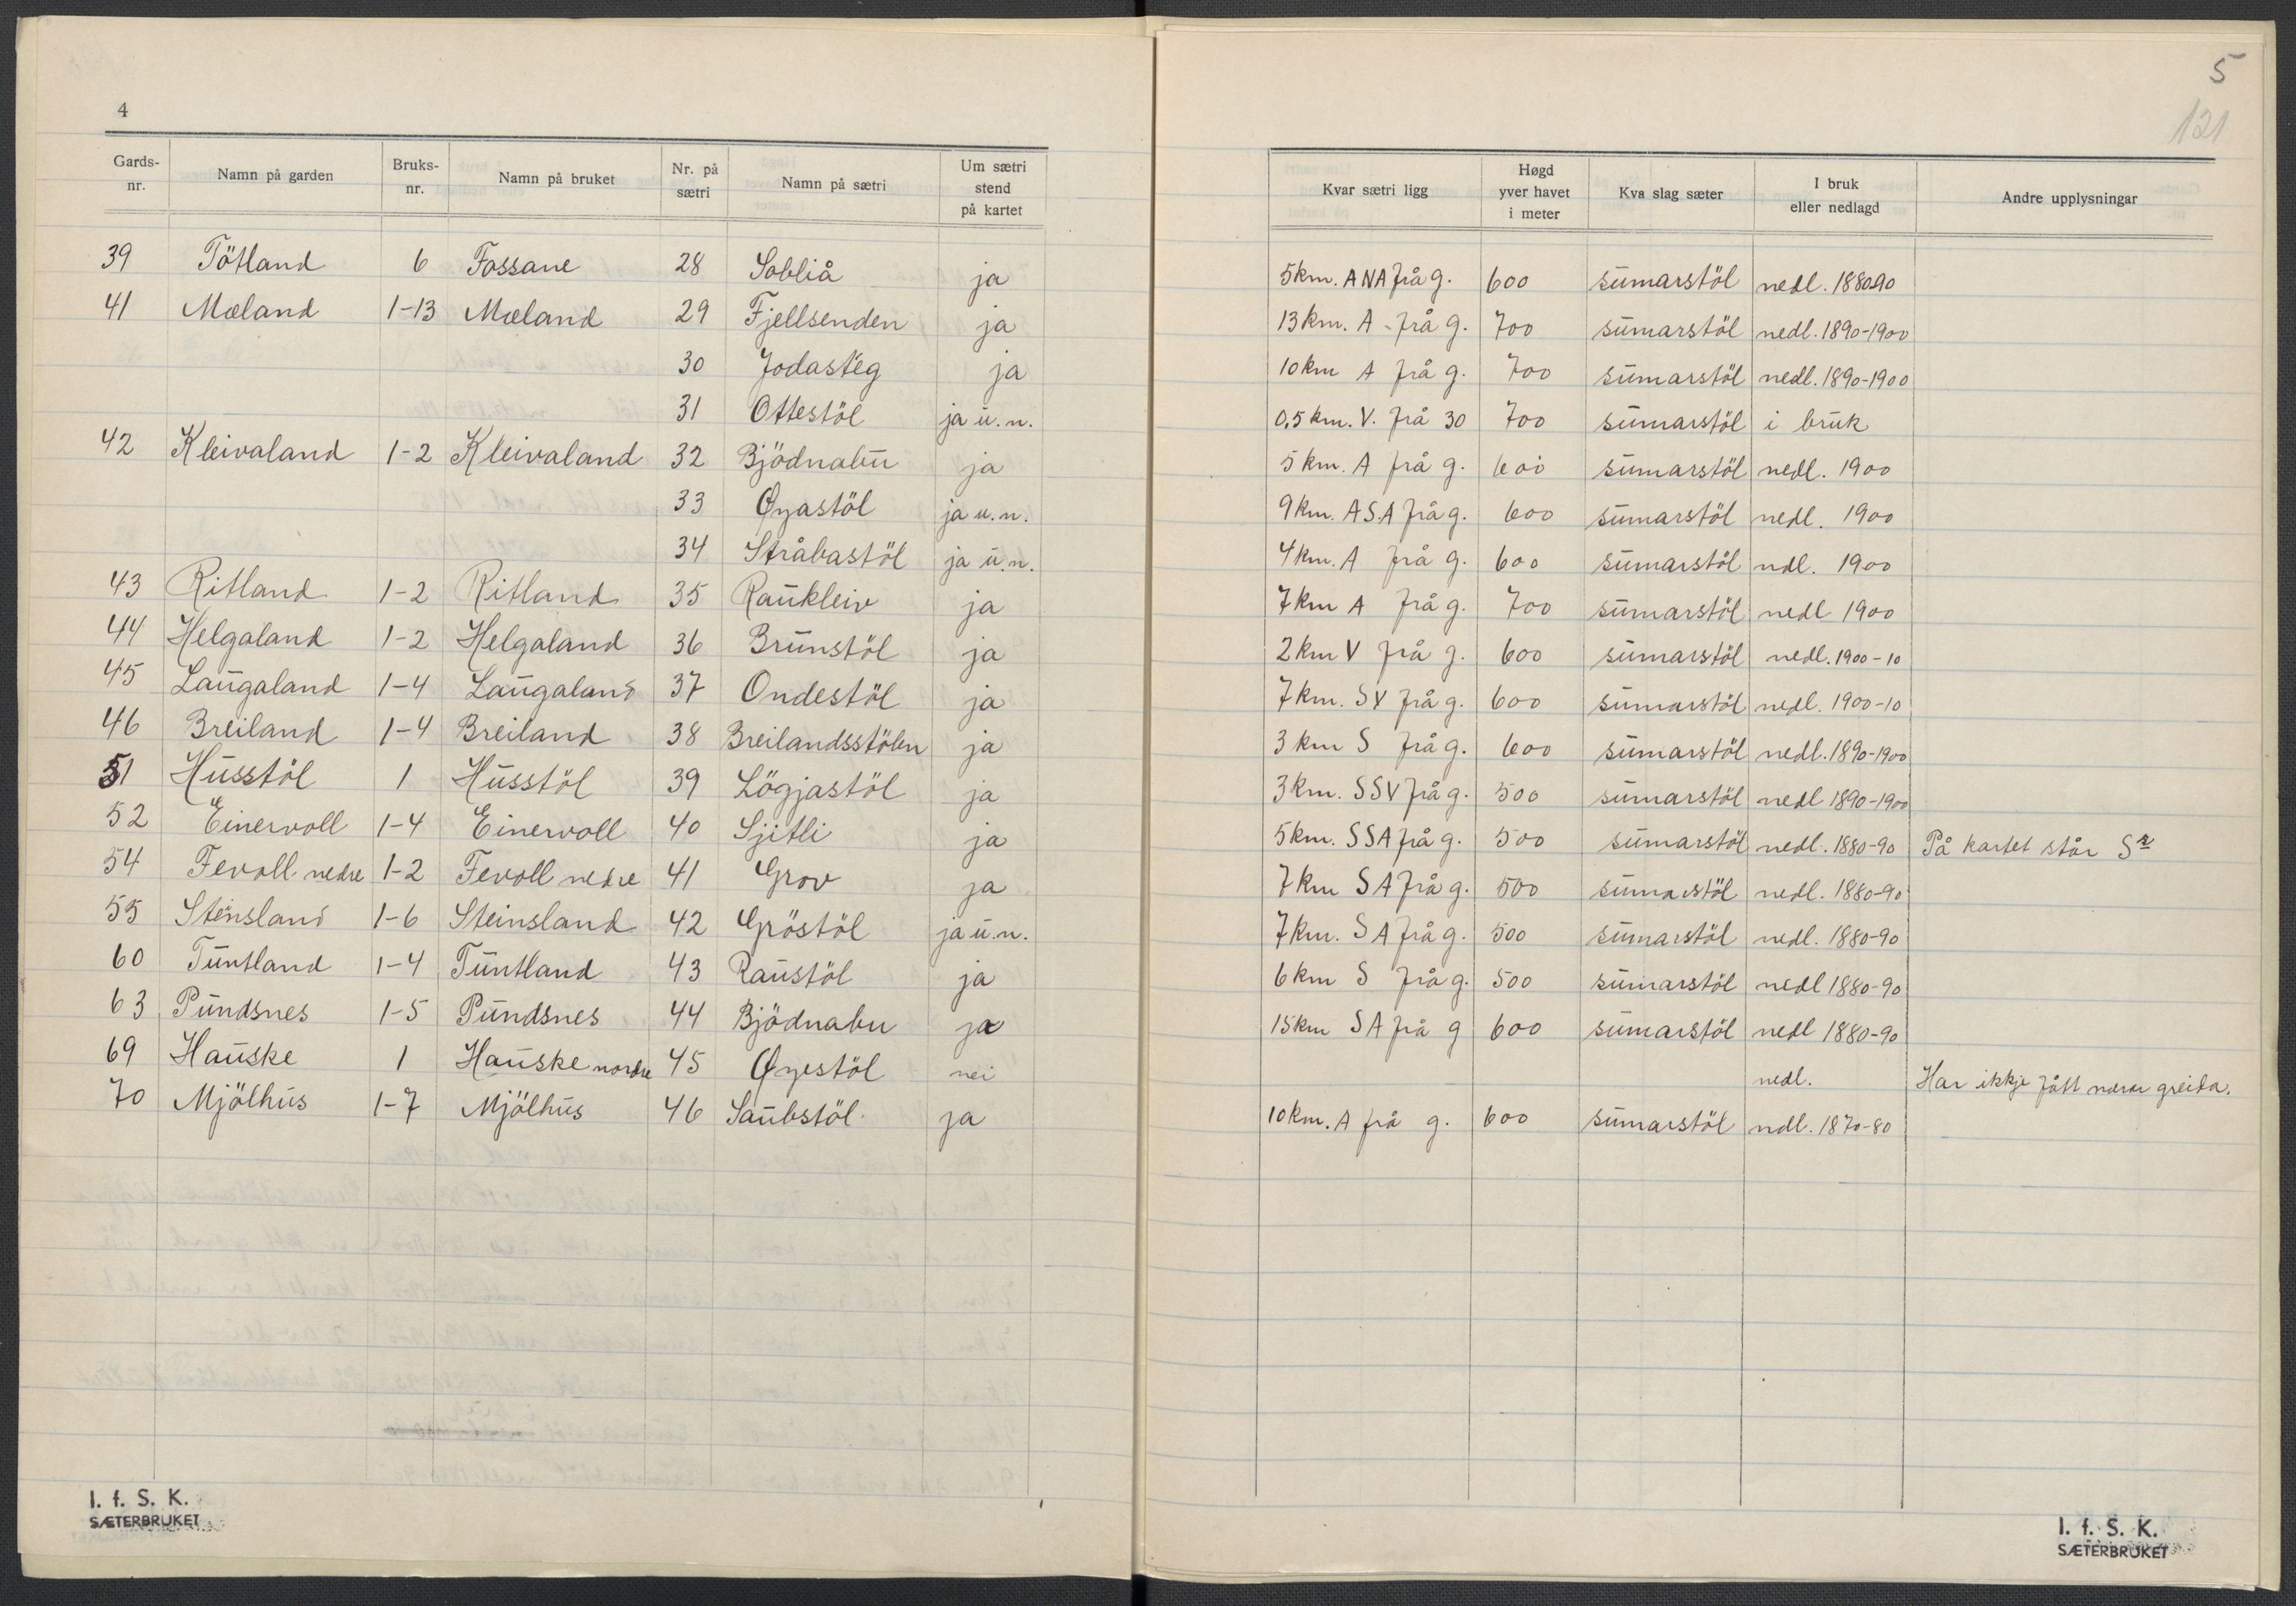 4
Gards-nr. Namn på garden Bruks-nr. Namn på bruket Nr. på sætri Namn på sætri Um sætri stend på kartet
39 Tötland 6 Fossane 28 Sobliå ja
41 Mæland 1-13 Mæland 29 Fjellsenden ja
30 Jodasteg ja
31 Ottestöl ja u.n.
42 Kleivaland 1-2 Kleivaland 32 Bjödnabu ja
33 Øyastöl ja u.n.
34 Stråbastöl ja u.n.
43 Ritland 1-2 Ritland 35 Raukleiv ja
44 Helgaland 1-2 Helgaland 36 Brunstöl ja
45 Laugaland 1-4 Laugaland 37 Ondestöl ja
46 Breiland 1-4 Breiland 38 Breilandsstölen ja
51 Husstöl 1 Husstöl 39 Lögjastöl ja
52 Einervoll 1-4 Einervoll 40 Sjitli ja
54 Fevoll nedre 1-2 Fevoll nedre 41 Grov ja
55 Steinsland 1-6 Steinsland 42 Gröstöl ja u.n.
60 Tuntland 1-4 Tuntland 43 Raustöl ja
63 Pundsnes 1-5 Pundsnes 44 Bjödnabu ja
69 Hauske 1 Hauske nordre 45 Øyestöl nei
70 Mjölhus 1-7 Mjölhus 46 Saubstöl ja
I. f. S. K.
SÆTERBRUKET
5
121
Kvar sætri ligg Høgd yver havet i meter Kva slag sæter I bruk eller nedlagd Andre upplysningar
5 km. ANA frå g. 600 sumarstöl nedl. 1880-90
13 km. A frå g. 700 sumarstöl nedl. 1890-1900
10 km A frå g. 700 sumarstöl nedl. 1890-1900
0,5 km. V. frå 30 700 sumarstöl i bruk
5 km. A frå g. 600 sumarstöl nedl. 1900
9 km. ASA frå g. 600 sumarstöl nedl. 1900
4 km. A frå g. 600 sumarstöl ndl. 1900
7 km A frå g. 700 sumarstöl nedl 1900
2 km V frå g. 600 sumarstöl nedl. 1900-10
7 km. SV frå g. 600 sumarstöl nedl. 1900-10
3 km S frå g. 600 sumarstöl nedl. 1890-1900
3 km. SSV frå g. 500 sumarstöl nedl 1890-1900
5 km. SSA frå g. 500 sumarstöl nedl. 1880-90 På kartet står Sr
7 km SA frå g. 500 sumarstöl nedl. 1880-90
7 km. SA frå g. 500 sumarstöl nedl. 1880-90
6 km S frå g. 500 sumarstöl nedl 1880-90
15 km SA frå g 600 sumarstöl nedl 1880-90
nedl. Har ikkje fått nærar greida.
10 km. A frå g. 600 sumarstöl ndl. 1870-80
I. f. S. K.
SÆTERBRUKET